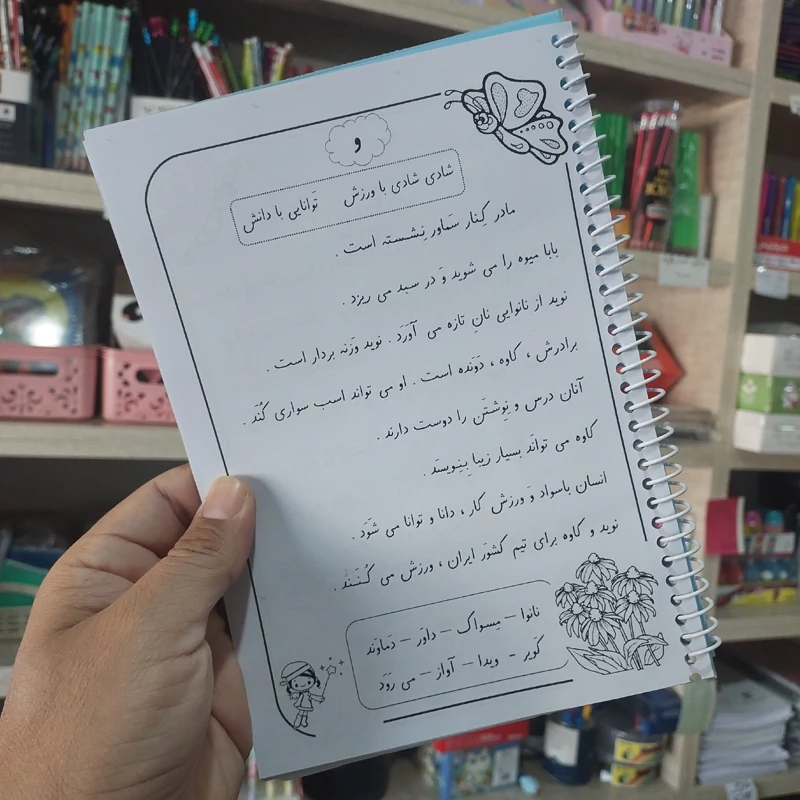 و
شادی شادی با ورزش تَوانایی با دانش
مادر کِنار سَماور نِشَسته است .
بابا میوه را می شوید وَ در سبد می ریزد .
نوید از نانوایی نانِ تازه می آوَرَد . نوید وَزنه بردار است .
برادرش ، کاوه ، دَوَنده است . او می تواند اسب سواری کُنَد .
آنان درس و نِوِشتَن را دوست دارند .
کاوه می تواند بسیار زیبا بِنِویسَد .
انسان باسواد وَ ورزش کار ، دانا و توانا می شَوَد .
نوید و کاوه برای تیم کشوَر ایران ، ورزش می کُنَند .
نانوا – مِسواک – داوَر – دَماوَند
کَویر - ویدا – آواز – می رَوَد